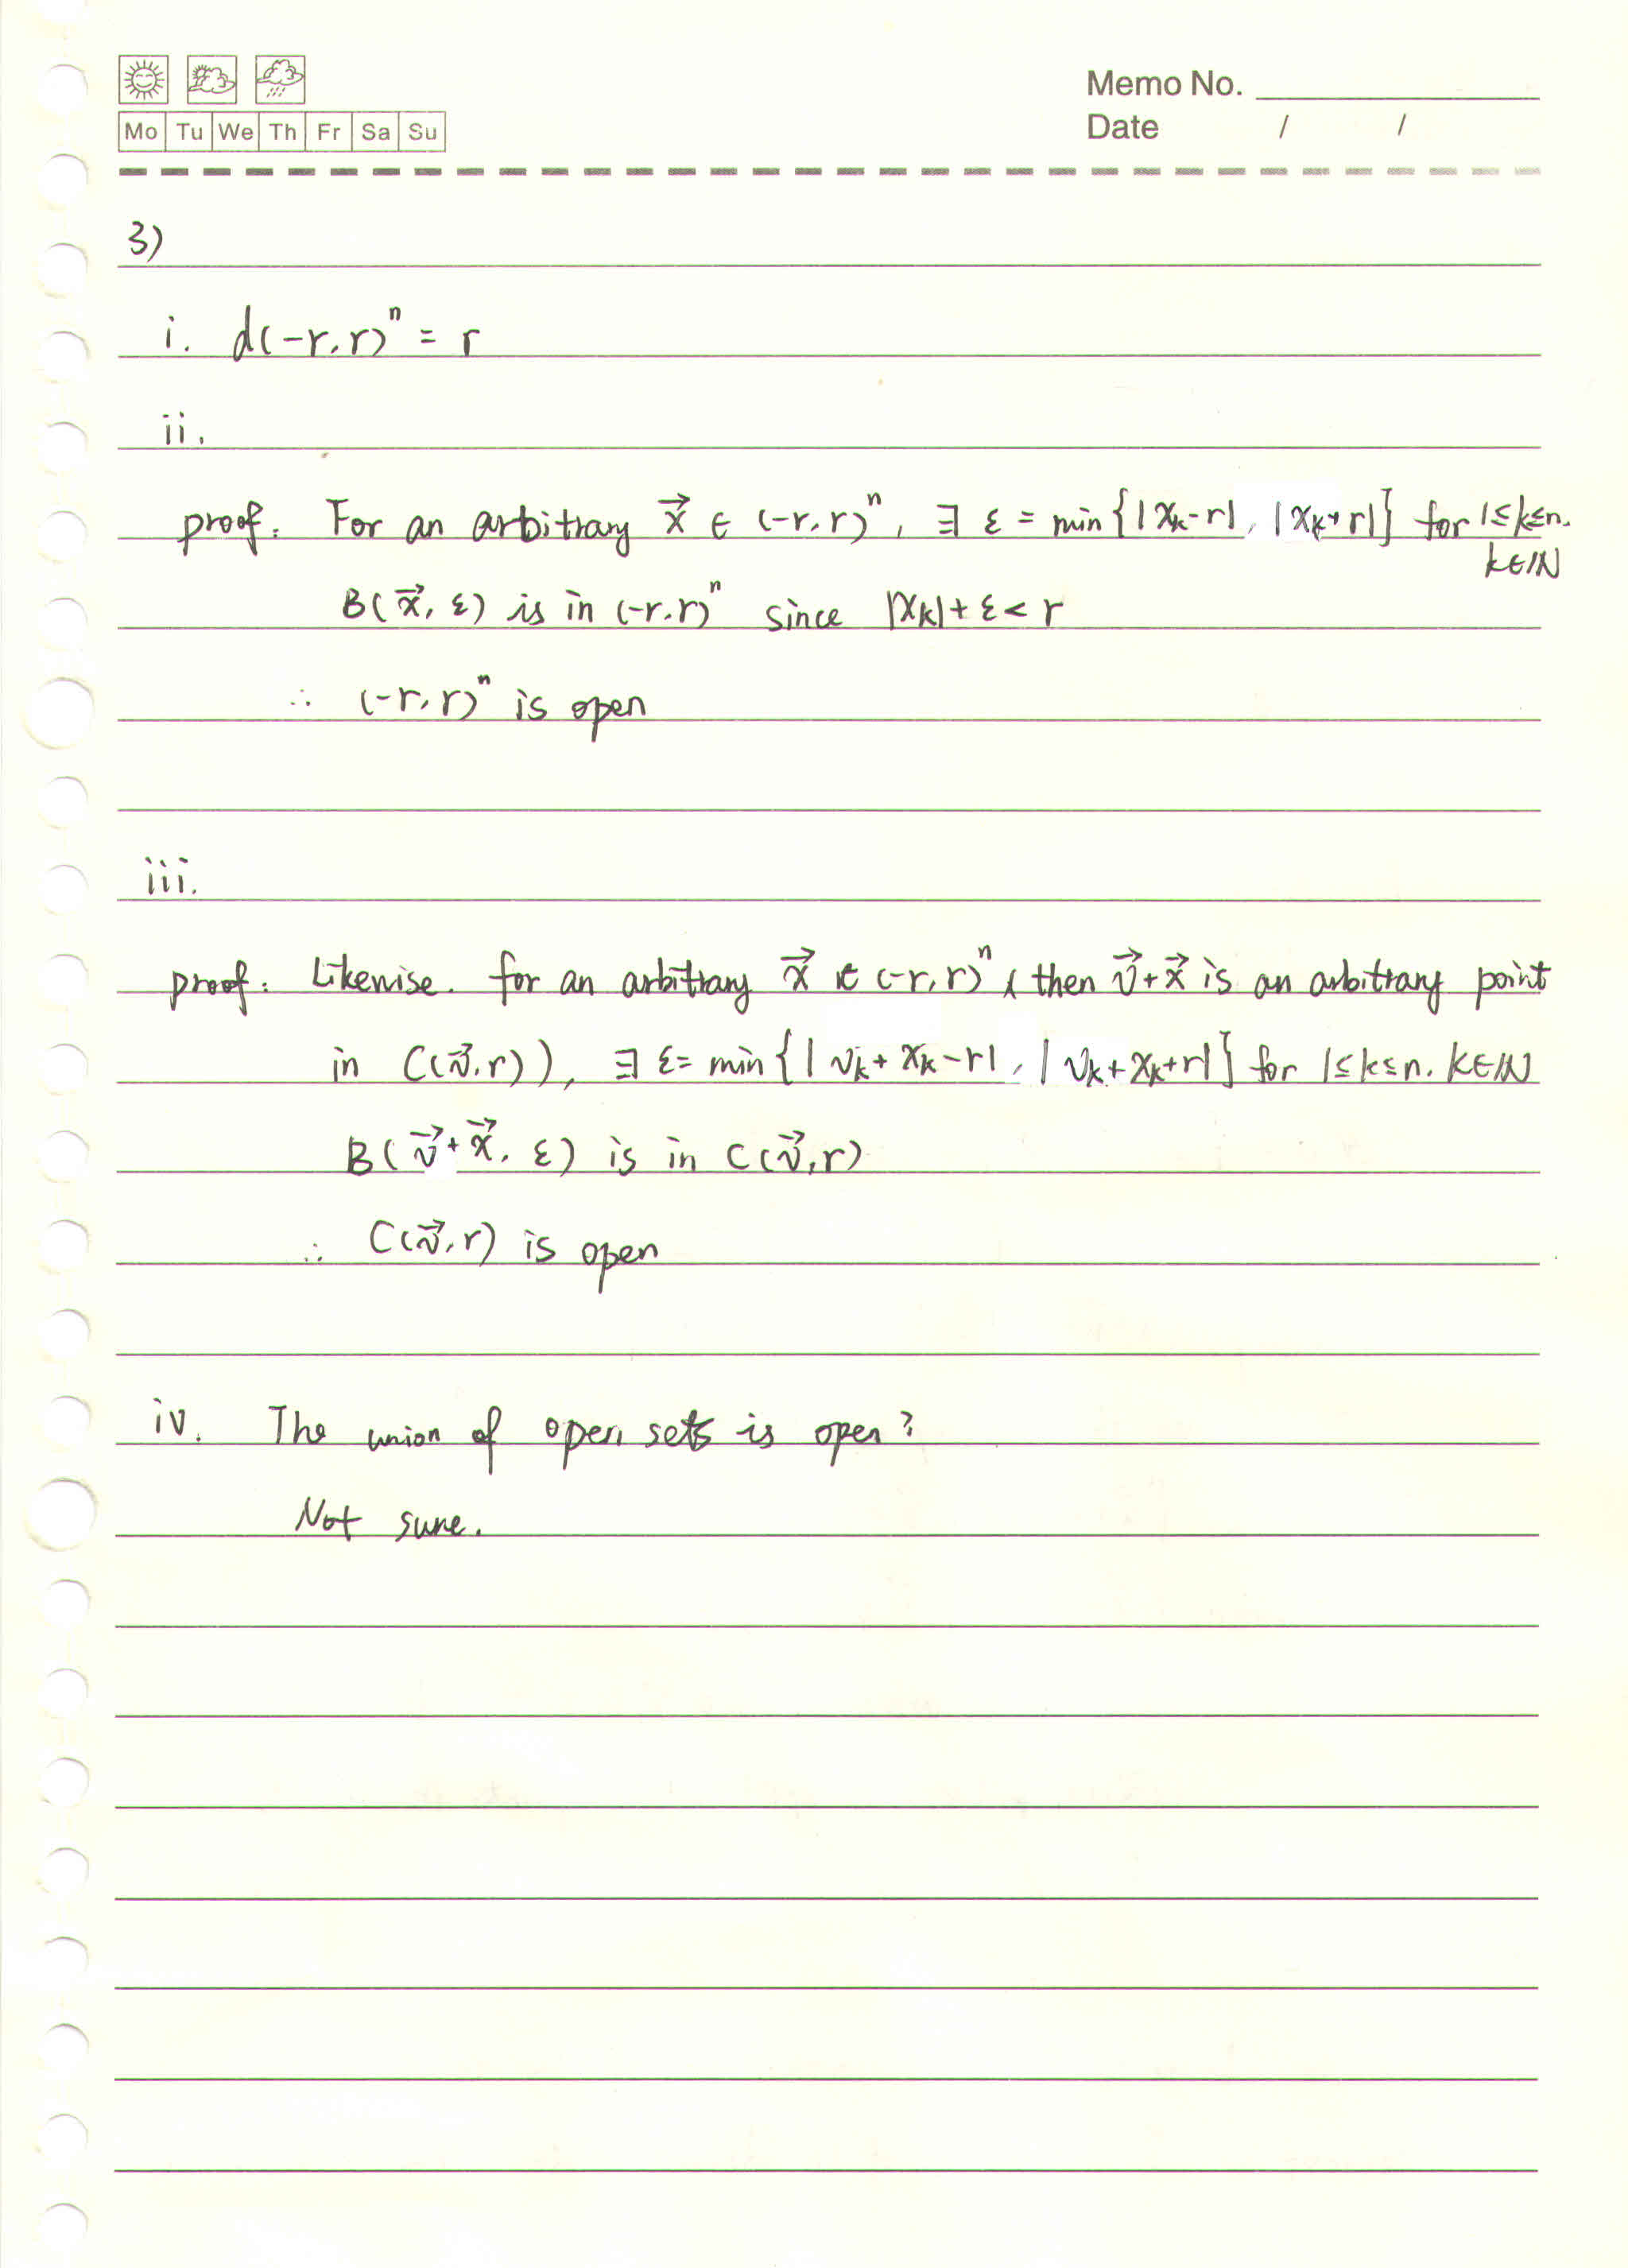 Memo No.
Mo Tu We Th Fr Sa Su
Date / /
3)
i. d(-r,r)ⁿ = r
ii.
proof: For an arbitrary x⃗ ∈ (-r,r)ⁿ, ∃ ε = min{|xₖ-r|, |xₖ+r|} for 1≤k≤n.
k∈ℕ
B(x⃗, ε) is in (-r,r)ⁿ since |xₖ|+ε<r
∴ (-r,r)ⁿ is open
iii.
proof: Likewise. for an arbitrary x⃗ ∈ (-r,r)ⁿ ( then v⃗+x⃗ is an arbitrary point
in C(v⃗,r)), ∃ ε= min{|vₖ+xₖ-r|, |vₖ+xₖ+r|} for 1≤k≤n. k∈ℕ
B(v⃗+x⃗, ε) is in C(v⃗,r)
∴ C(v⃗,r) is open
iv. The union of open sets is open?
Not sure.